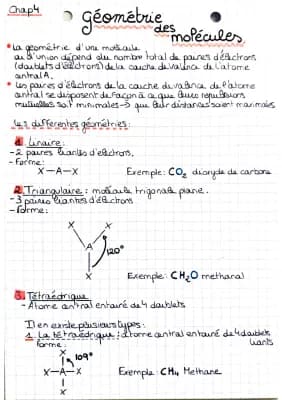 Chap4
géométrie
des
molécules
• La géométrie d'une molécule
ou d'union dépend du nombre total de paires d'électrons
(doublets d'électrons) de la couche de valence de l'atome
central A.
• Les paires d'électrons de la couche de valence de l'atome
central se disposent de façon à ce que leurs répulsions
mutuelles soit minimales → que leur distances soient maximales
Les differentes géométries:
1. Linaire:
- 2 paires liantes d'électrons.
- Forme:
X-A-X
Exemple: CO2 dioxyde de carbone
2. Triangulaire: molécule trigonale plane.
- 3 paires liantes d'électrons
- Forme:
X X
A
120°
X
Exemple: CH2O méthanal
3. Tétraédrique
- Atome central entouré de 4 doublets
Il en existe plusieurs types:
1. La tétraédrique: atome central entouré de 4 doublets
liants
forme:
X
109°
X-A-X
X
Exemple: CH4 Methane